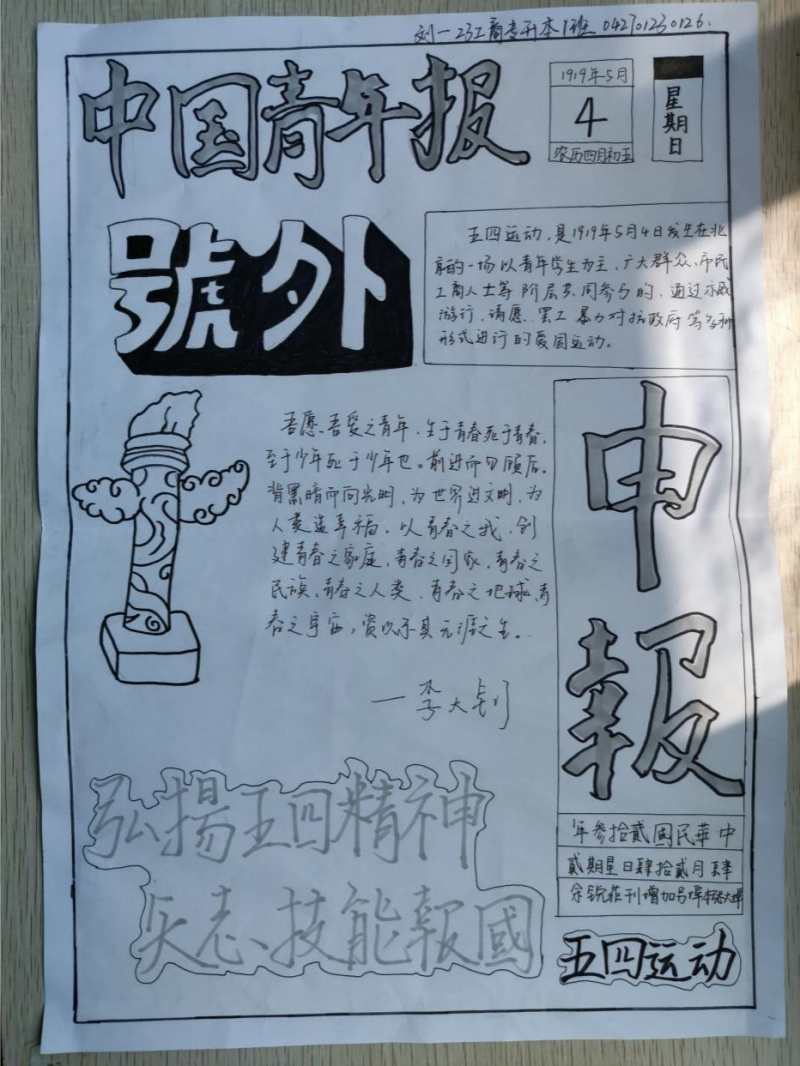 刘一 23工商专升本1班 042701230126.
中国青年报
1919年5月
4
农历四月初五
星期日
號外
五四运动,是1919年5月4日发生在北
京的一场以青年学生为主,广大群众、市民
工商人士等阶层共同参与的,通过示威
游行,请愿、罢工、暴力对抗政府等多种
形式进行的爱国运动。
吾愿吾爱之青年,生于青春死于青春,
生于少年死于少年也。前进而勿顾后,
背黑暗而向光明,为世界进文明,为
人类造幸福,以青春之我,创
建青春之家庭,青春之国家,青春之
民族,青春之人类,青春之地球,青
春之宇宙,资以乐其无涯之生。
一李大钊
申報
年叁拾貳國民華中
貳期星日肆拾貳月肆
刊增加号
弘揚五四精神
矢志技能報國
五四运动